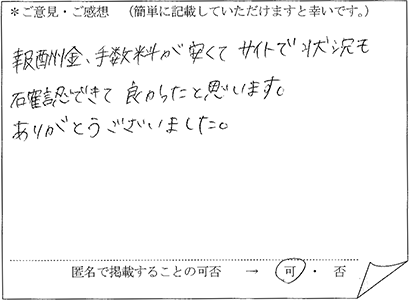 *ご意見・ご感想　(簡単に記載していただけますと幸いです。)
報酬金、手数料が安くて サイトで状況も
確認できて 良かったと思います。
ありがとうございました。
匿名で掲載することの可否　→　可・否